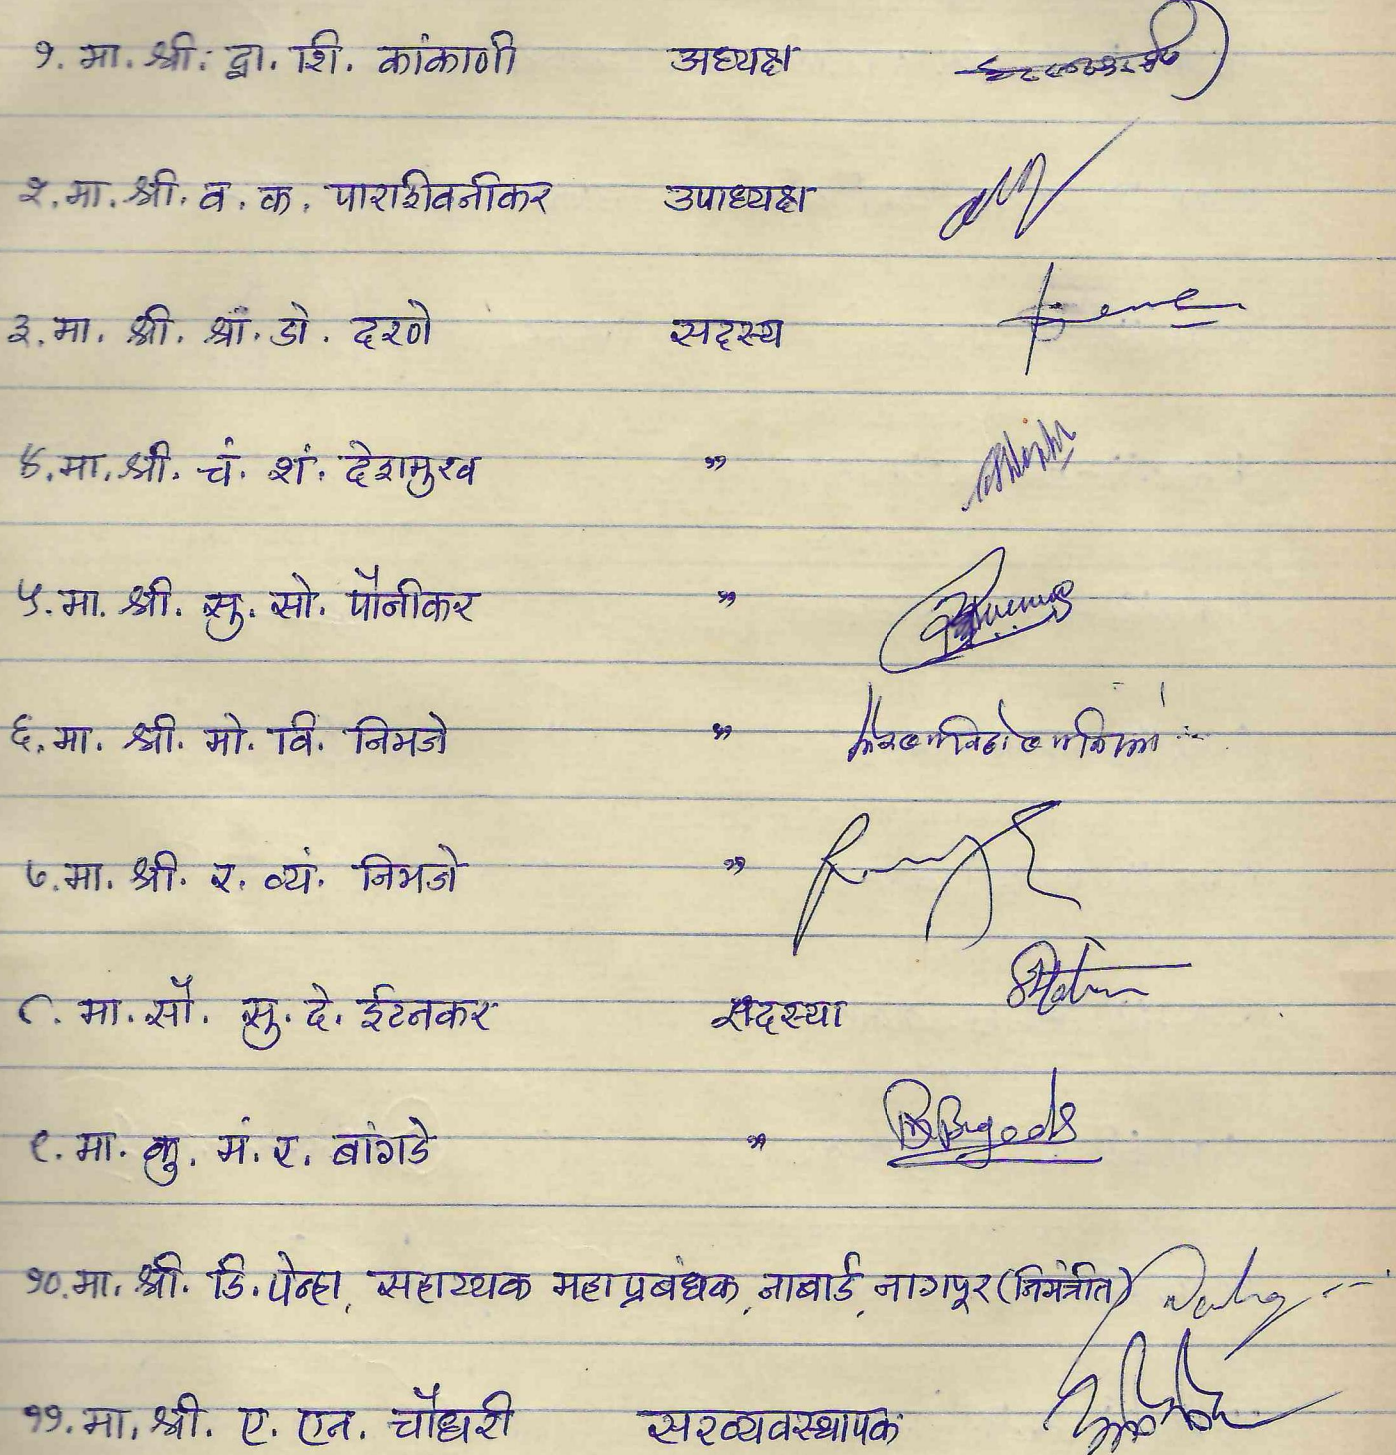 १. मा. श्री. द्वा. शि. कांकाणी अध्यक्ष
२. मा. श्री. व. क. पाराशीवनीकर उपाध्यक्ष
३. मा. श्री. श्रा. डो. दरणे सदस्य
४. मा. श्री. चं. शं. देशमुख "
५. मा. श्री. सु. सो. पौनीकर "
६. मा. श्री. मो. वि. निमजे "
७. मा. श्री. र. व्यं. निमजे "
८. मा. सौ. सु. दे. ईटनकर सदस्या
९. मा. कु. मं. र. बांगडे "
१०. मा. श्री. डि. पेन्हा, सहाय्यक महाप्रबंधक, नाबार्ड, नागपूर (निमंत्रीत)
११. मा. श्री. ए. एन. चौधरी सरव्यवस्थापक